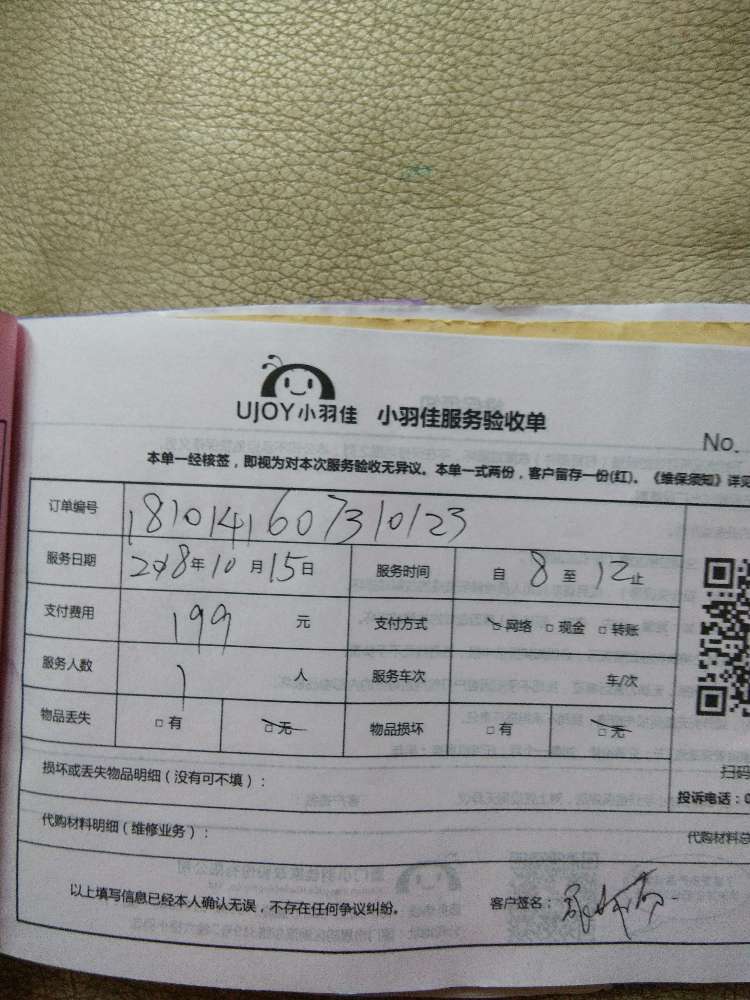 UJOY小羽佳 小羽佳服务验收单
No.
本单一经核签，即视为对本次服务验收无异议。本单一式两份，客户留存一份(红)。《维保须知》详见
订单编号 1810141607310123
服务日期 2018年10月15日 服务时间 自 8 至 12止
支付费用 199 元 支付方式 □网络 □现金 □转账
服务人数 1 人 服务车次 车/次
物品丢失 □有 □无 物品损坏 □有 □无
扫码
损坏或丢失物品明细（没有可不填）：
投诉电话：0
代购材料明细（维修业务）：
代购材料总
以上填写信息已经本人确认无误，不存在任何争议纠纷。 客户签名：